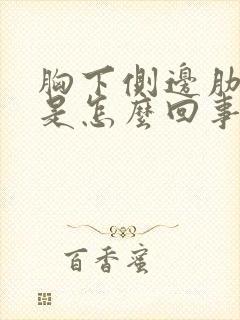 胸下側邊肋
是怎麼回事
百香蜜